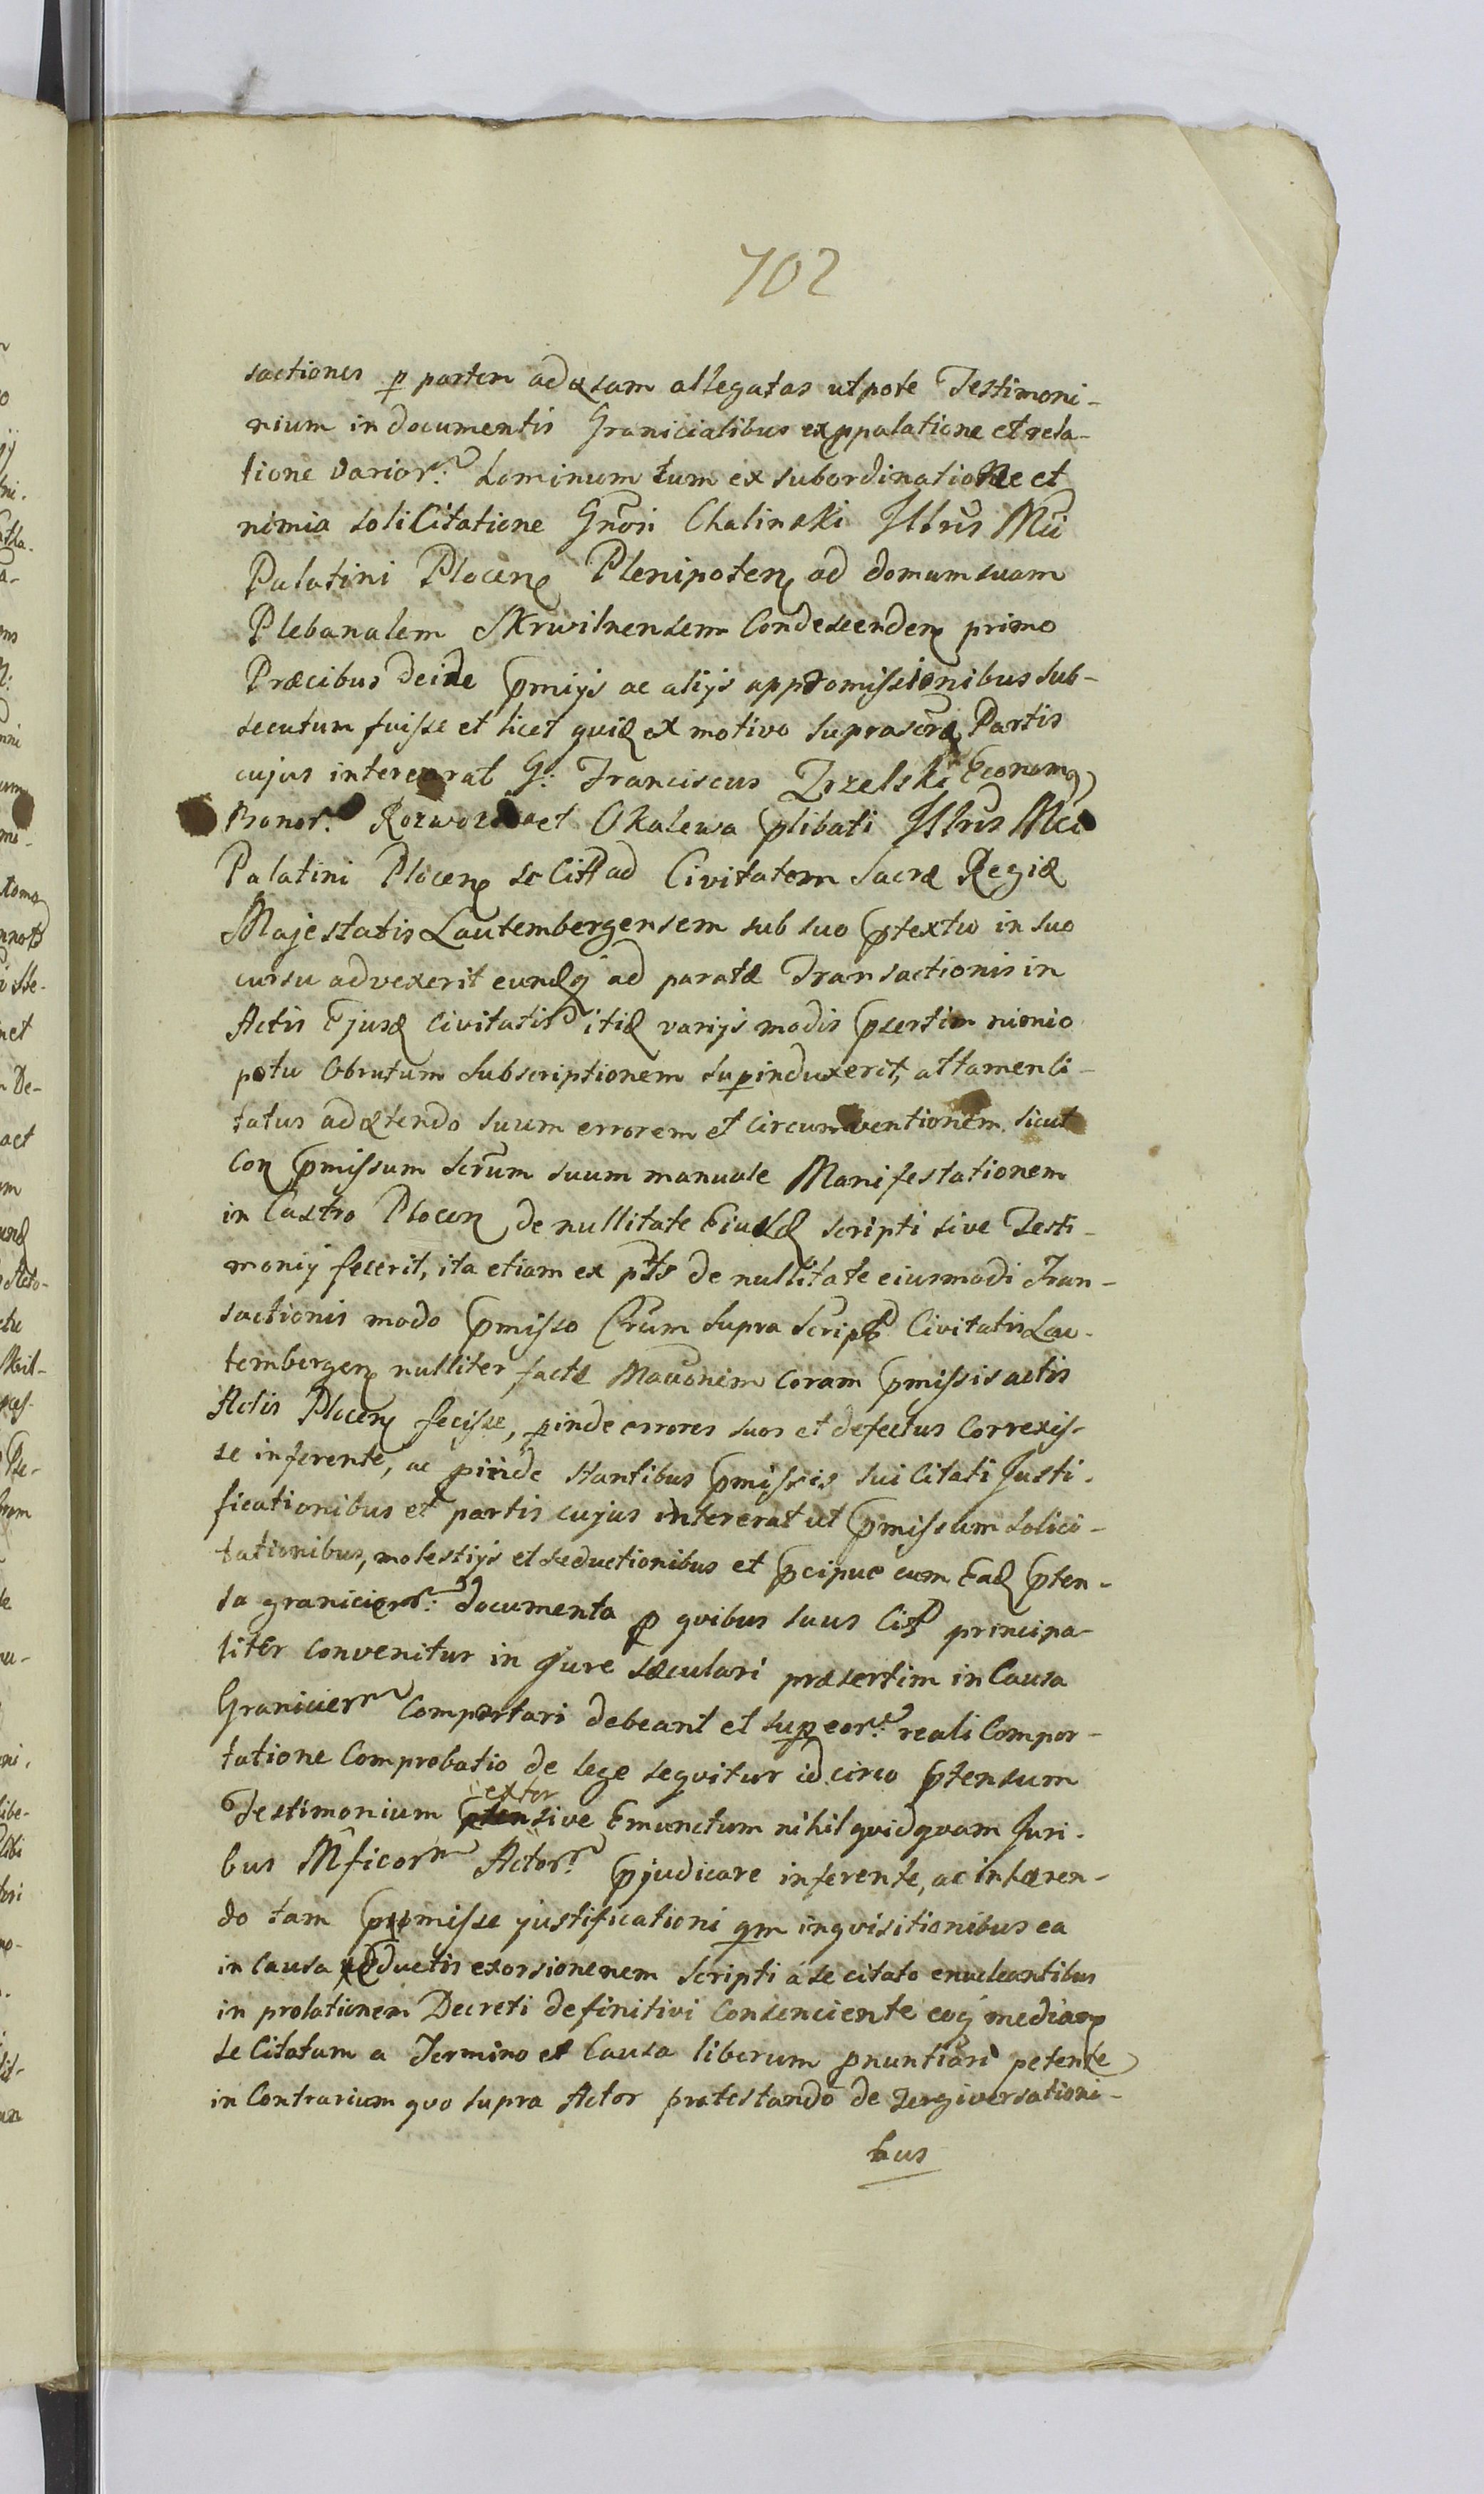 702
sactiones p partem adversam allegatas utpote Testimoni-
nium in documentis Granicialibus ex ppalatione et rela-
tione varior: hominum tum ex subordinatione et
nimia soliCitatione Gnosi Chalinski Illris Mci
Palatini Plocen Plenipoten ad domum suam
Plebanalem Skrwilnensem Condescenden primo
Præcibus deinde pmiys ac aliys appromissionibus sub-
secutum fuisse et licet quid ex motivo suprascrae Partis
cujus intererat G: Franciscus Zrzelski Econom9
Bonor: et Okalewa plibati Illris Mci
Palatini Plocen se Citt ad Civitatem Sacræ Regiæ
Majestatis Lautembergensem sub suo ptextu in suo
cursu advexerit eundq ad paratæ Transactionis in
Actis Ejusd Civitatis itid variys modis psertim nimio
potu Obrutum Subscriptionem supinduxerit, attamen Ci-
tatus advertendo suum errorem et circumventionem sicut
Con pmissum Scrum suum manuale Manifestationem
in Castro Plocen de nullitate Eiusd scripti sive Testi-
moniy fecerit, ita etiam ex pts de nullitate eiusmodi Tran-
sactionis modo pmisso Crum Supra Script Civitatis Lau-
tembergen nulliter factæ Maönem Coram pmissis actis
Actis Plocen fecisse, pinde errores suos et defectus Correxis-
se inferente, ac pinde stantibus pmissis sui Citati Justi-
ficationibus et partis cujus intererat ut pmissum solici-
tationibus, molestiys et seductionibus et pcipue cum Ead pten-
sa granicier: documenta p quibus suus Citt principa-
liter convenitur in Jure sæculari præsertim in Causa
Granicier Comportari debeant et sup eor: reali Compor-
tatione Comprobatio de lege sequitur id circo ptensum
extor
Testimonium ptensive Emunctum nihil quidquam Juri-
bus Mficor Actor: pjudicare inferente, ac inhæren-
do tam pmisse justificationi qm inquisitionibus ea
in Causa eductis exorsionenem scripti á se citato enucleantibus
in prolationem Decreti definitivi Consenciente eoq median
se Citatum a Termino et Causa liberum pnuntiari petente
in Contrarium quo supra Actor protestando de tergiversationi-
bus